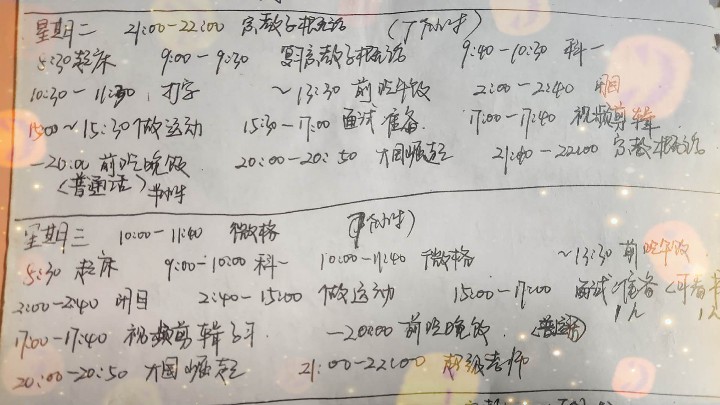 星期二 21:00-22:00 宗教子概论 (7个小时)
5:30起床 9:00-9:30 复习宗教子概论 9:40-10:30 科一
10:30-11:30 打字 ~13:30 前吃午饭 2:00-2:40 明目
15:00~15:30做运动 15:30-17:00 面试准备 17:00-17:40 视频剪辑
-20:00 前吃晚饭 20:00-20:50 大国崛起 21:40-22:00 宗教概论
(普通话)
星期三 10:00-11:40 微格 (个小时)
5:30 起床 9:00-10:00 科一 10:00-11:40 微格 ~13:30 前吃午饭
2:00-2:40 明目 2:40-15:00 做运动 15:00-17:00 面试准备
17:00-17:40 视频剪辑 -20:00 前吃晚饭
20:00-20:50 大国崛起 21:00-22:00 超级老师